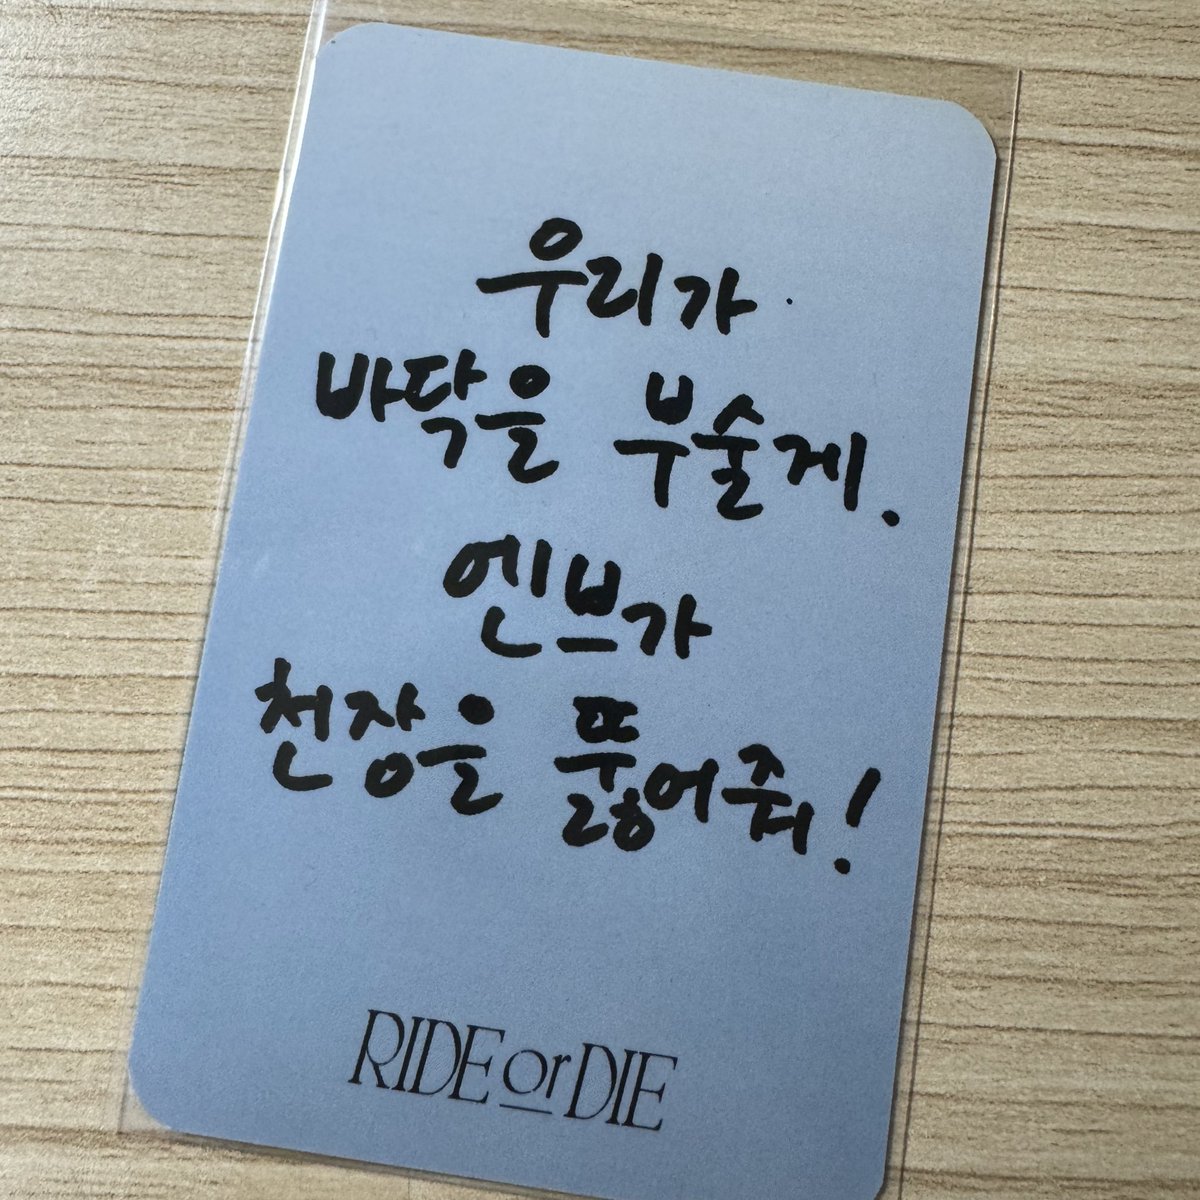 우리가
바닥을 부술게.
엔브가
천장을 뚫어줘!
RIDE or DIE